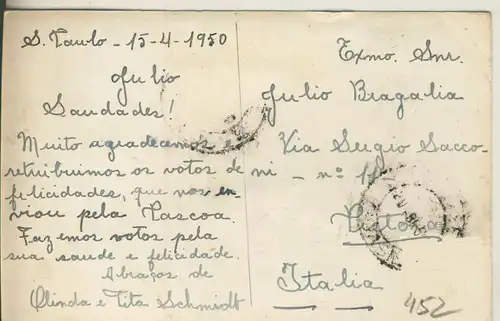 S. Paulo - 15-4-1950
Julio
Saudades!
Muito agradecemos e
retribuimos os votos de
felicidades, que nos en-
viou pela Pascoa.
Fazemos votos pela
sua saude e felicidade.
Abraços de
Olinda e Tita Schmidt
Exmo. Snr.
Julio Bragalia
Via Sergio Sacco-
ni - nº
Italia
452